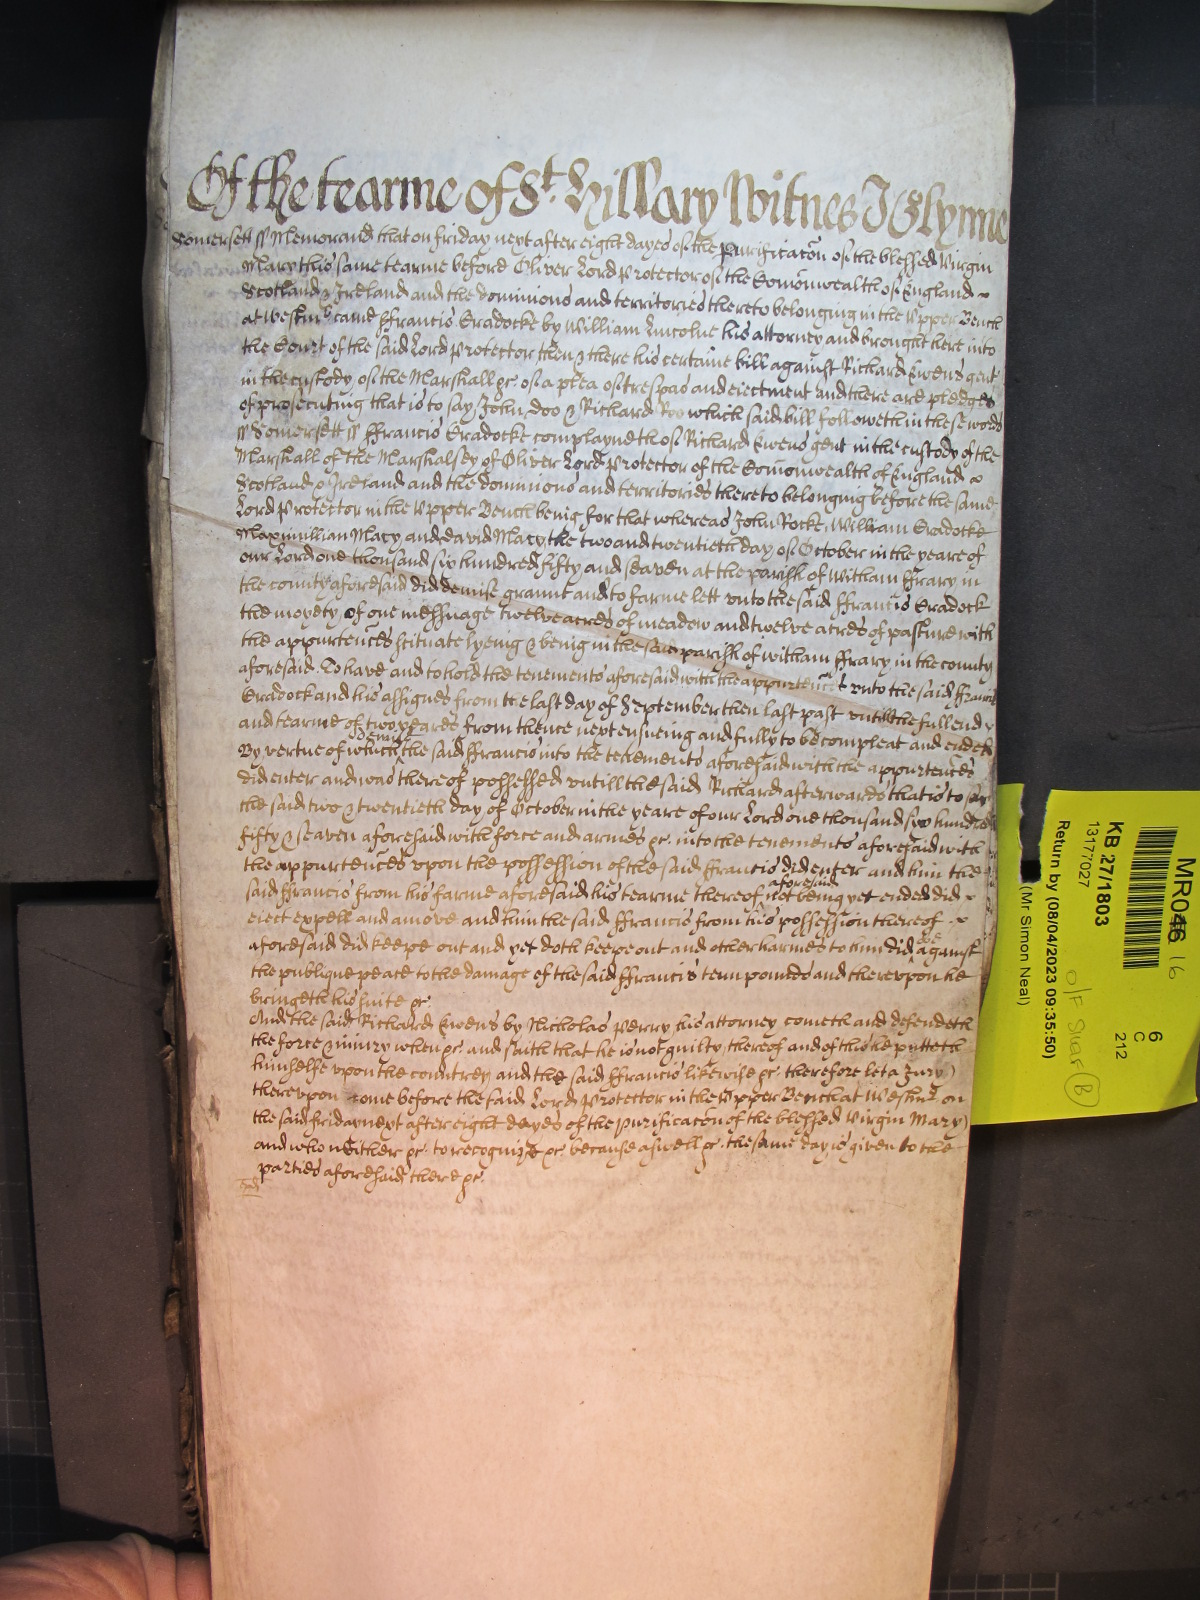 Of the tearme of St. Hillary Witnes J Glynne
Somersett ss Memorand that on Friday next after eight dayes of the purificacon of the blessed Virgin
Mary this same tearme before Oliver Lord Protector of the Comonwealth of England
Scotland & Ireland and the dominions and territories thereto belonging in the Upper Bench
at Westmr came ffrancis Cradocke by William Lincolne his attorney and brought here into
the Court of the said Lord Protector then & there his certaine bill against Richard Ewens gent
in the custody of the Marshall &c. of a plea of trespas and eiectment and there are pledges
of prosecuting that is to say John Doo & Richard Roo which said bill followeth in these words
ss Somersett ss ffrancis Cradocke complayneth of Richard Ewens gent in the custody of the
Marshall of the Marshalsey of Oliver Lord Protector of the Comonwealth of England
Scotland & Ireland and the dominions and territories thereto belonging before the same
Lord Protector in the Upper Bench being for that whereas John Rocke William Cradocke
Maximillian Macy and david Macy the two and twentieth day of October in the yeare of
our Lord one thousand six hundred fifty and seaven at the parish of Witham ffrary in
the county aforesaid did demise graunt and to farme lett unto the said ffrancis Cradock
the moyety of one messuage twelve acres of meadow and twelve acres of pasture with
the appurtences scituate lyeing & being in the said parish of witham ffrary in the county
aforesaid. To have and to hold the tenements aforesaid with the appurtences unto the said ffrancis
Cradock and his assignes from the last day of September then last past untill the full end
and tearme of two yeares from thence next ensueing and fully to be compleat and ended
By vertue of which demise the said ffrancis into the tenements aforesaid with the appurtences
did enter and was thereof possessed untill the said Richard afterwards that is to say
the said two & twentieth day of October in the yeare of our Lord one thousand six hundred
fifty & seaven aforesaid with force and armes &c. into the tenements aforesaid with
the appurtences upon the possession of the said ffrancis did enter and him the
said ffrancis from his farme aforesaid his tearme thereof aforesaid not being yet ended did
eiect expell and amove and him the said ffrancis from his possession thereof
aforesaid did keepe out and yet doth keepe out and other harmes to him did &c against
the publique peace to the damage of the said ffrancis tenn pounds and thereupon he
bringeth his suite &c.
And the said Richard Ewens by Nicholas Perry his attorney cometh and defendeth
the force & iniury when &c. and saith that he is not guilty thereof and of this he putteth
himselfe upon the countrey and the said ffrancis likewise &c. therefore let a Jury
thereupon come before the said Lord Protector in the Upper Bench at Westmr on
the said friday next after eight dayes of the purificacon of the blessed Virgin Mary
and who neither &c. to recognize &c. because aswell &c. the same day is given to the
parties aforesaid there &c.
MR046 16
KB 27/1803
13177027
Return by (08/04/2023 09:35:50)
(Mr Simon Neal)
6
C
212
O/F Staff B